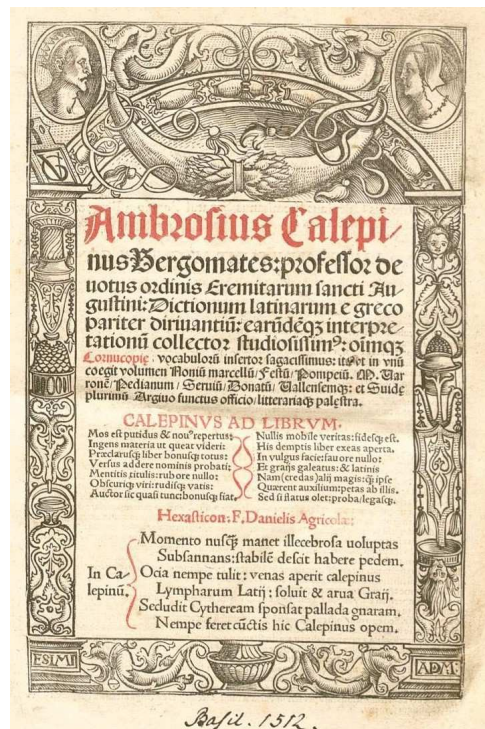 Ambrosius Calepi/
nus Bergomates: professor de
uotus ordinis Eremitarum sancti Au-
gustini: Dictionum latinarum e greco
pariter diriuantiū: earūdēqꝫ interpre-
tationū collector studiosissimꝰ: oīmqꝫ
Cornucopię. vocabulorū insertor sagacissimus: ita et in vnū
coegit volumen Noniū marcellū/Festū/Pompeiū. M. Uar
ronē/Pedianum/Seruiū/Donatū/Uallensemqꝫ: et Suidę
plurimū Argiuo functus officio/litterariaqꝫ palęstra.
CALEPINVS AD LIBRVM.
Mos est putidus & nouꝰ repertus:
Ingens materia ut queat videri:
Præclarusqꝫ liber bonusqꝫ totus:
Versus addere nominis probati:
Mentitis titulis: rubore nullo:
Obscuriqꝫ viri: rudisqꝫ vatis:
Auctor sic quasi tunc: bonusqꝫ fiat.
Nullis mobile veritas: fidesqꝫ est.
His demptis liber exeas aperta.
In vulgus facie: fauore nullo:
Et graijs galeatus: & latinis
Nam (credas) alij magis: qꝫ ipse
Quærent auxilium: petas ab illis.
Sed si flatus olet: proba/legasqꝫ.
Hexasticon: F. Danielis Agricolæ:
In Ca-
lepinū.
Momento nusqꝫ manet illecebrosa uoluptas
Subsannans: stabilē descit habere pedem.
Ocia nempe tulit: venas aperit calepinus
Lympharum Latij: soluit & arua Graij.
Sedudit Cytheream sponsat pallada gnaram.
Nempe feret cūctis hic Calepinus opem.
ESIMI
ADM.
Basil. 1512.